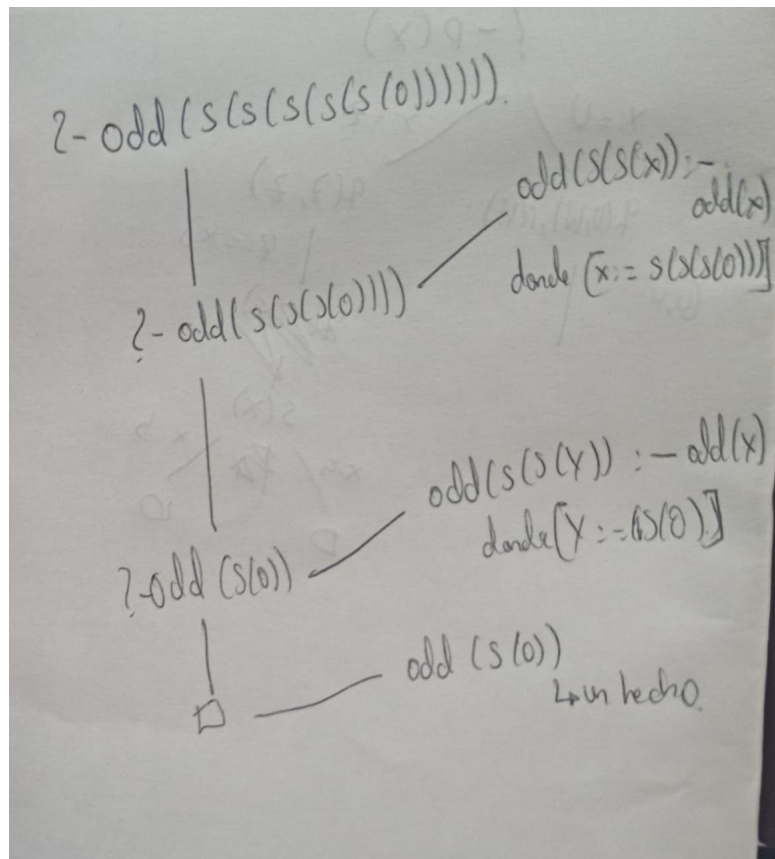 ?- odd(s(s(s(s(s(0)))))).
odd(s(s(x)):-
odd(x)
donde [x:= s(s(s(0)))]
?- odd(s(s(s(0))))
odd(s(s(y)) :- odd(x)
donde [y:= s(0)]
?-odd (s(0))
odd (s(0))
↳ un hecho.